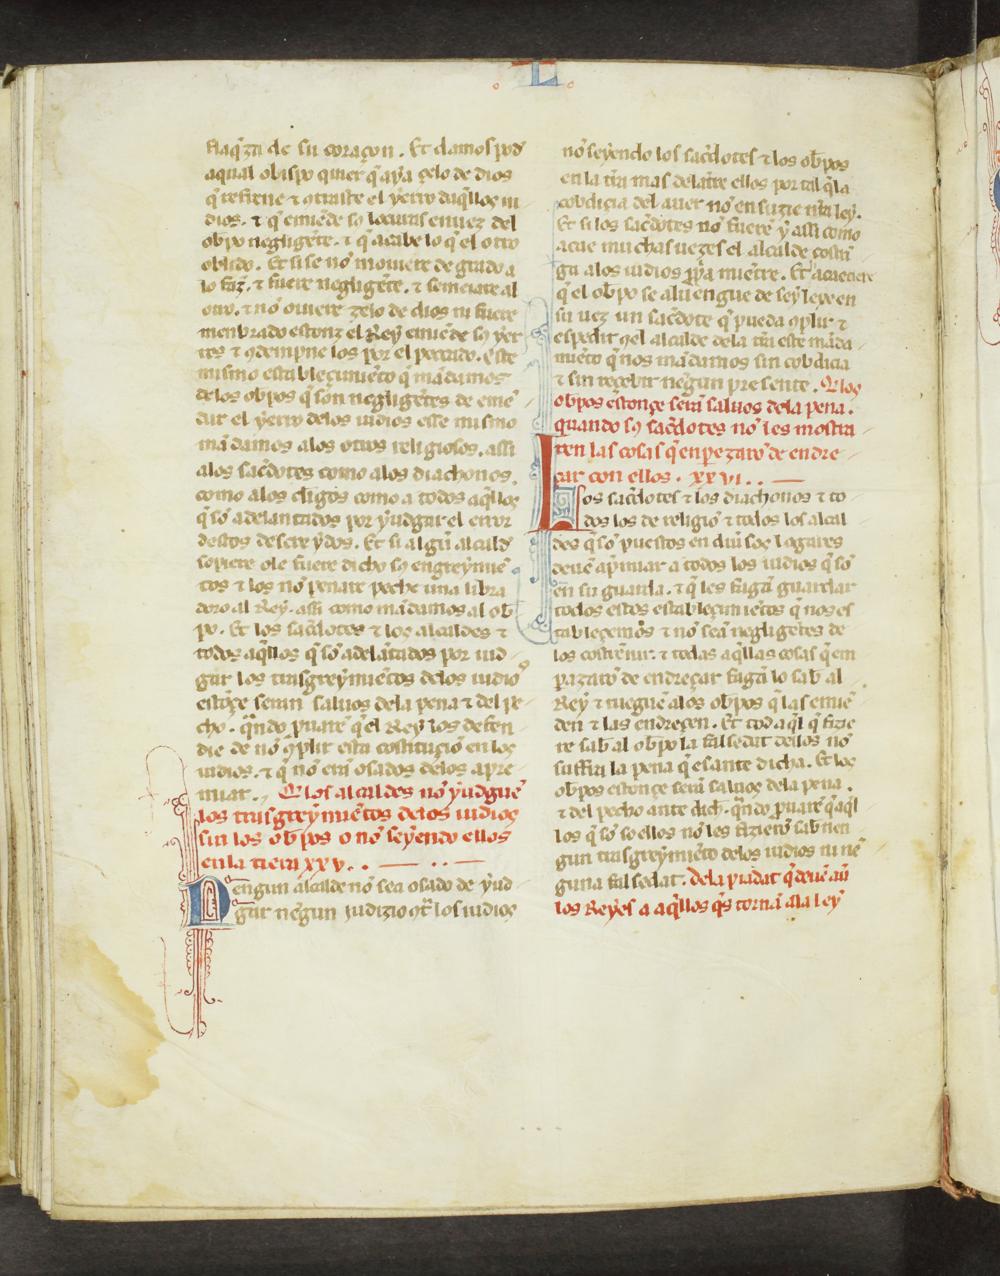 L
flaq̃za de su coraçon. Et damos pod̃
aqual obispo quier q̃ aya çelo de dios
q̃ refrene ⁊ ɔtraste el yerro daq̃llos iu
dios. ⁊ q̃ emiẽde so locuras en uez del
obpo negligẽte. ⁊ q̃ acabe lo q̃ el otro
oblido. Et si se nõ mouiere de grado a
lo faz̃. ⁊ fuere negligẽte. ⁊ semeiare al
otro. ⁊ nõ ouiere zelo de dios ni fuere
menbrado estonz el Rey emiẽde sos yer
ros ⁊ ɔdempne los por el peccado. Este
mismo estableçimiẽto q̃ mãdamos
delos obpos q̃ son negligẽtes de eme
dar el yerro delos iudios esse mismo
mãdamos alos otros religiosos. assi
alos sac̃dotes como alos diachonos.
como alos cl̃igos como a todos aq̃llos
q̃ sõ adelantados por yudgar el error
destos descreydos. Et si algũ alcalde
sopiere ole fuere dicho so engreymiẽ
tos ⁊ los nõ penare peche una libra
doro al Rey. assi como mãdamos al ob
po. Et los sac̃dotes ⁊ los alcaldes ⁊
todos aq̃llos q̃ sõ adelãtados por iud
gar los trasgreymiẽtos delos iudios
estõçe seran saluos dela pena ⁊ del pe
cho. q̃ndo puarẽ q̃ el Rey los defen
die de nõ ɔplir esta costituçiõ en los
iudios. ⁊ q̃ nõ erã osados delos apre
miar. Q̃ los alcaldes nõ yudguẽ
los trasgreymiẽtos delos iudios
sin los obpos o nõ seyendo ellos
en la tierra xxv.
Nengun alcalde nõ sea osado de yud
gar nengun judizio ɔtra los iudios
nõ seyendo los sac̃dotes ⁊ los obpos
en la tr̃ra mas delante ellos por tal q̃ la
cobdiçia del auer nõ ensuzie nr̃a ley.
Et si los sac̃dotes nõ fuerẽ y assi como
acaeçe muchas uezes el alcalde costri
ga alos iudios ppĩa miẽtre. Et si acaeciere
q̃ el obpo se aluengue de sey lexe en
su uez un sac̃dote q̃ pueda ɔplir ⁊
espedir ɔel alcalde dela tr̃ra este mãda
miẽto q̃ nos mãdamos sin cobdicia
⁊ sin reçebir nẽgun presente. Q̃ los
obpos estonçe serã saluos dela pena.
quando sos sac̃dotes nõ les mostra
ren las cosas q̃ enpezarõ de endre
çar con ellos. xxvi.
Los sac̃dotes ⁊ los diachonos ⁊ to
dos los de religiõ ⁊ todos los alcal
des q̃ sõ puestos en diũsos logares
deuẽ ap̃miar a todos los iudios q̃ sõ
en su guarda. ⁊ q̃ les fagã guardar
todos estos estableçimiẽtos q̃ nos es
tableçemos ⁊ nõ seã negligẽtes de
los costrenir. ⁊ todas aq̃llas cosas q̃ em
pazarõ de endreçar fagã lo sab̃ al
Rey ⁊ rueguẽ alos obpos q̃ las emiẽ
den ⁊ las endreçen. Et tod aq̃l q̃ fizie
re sab̃ al obpo la falsedat dellos nõ
suffrã la pena q̃ es ante dicha. Et los
obpos estonçe serã saluos dela pena.
⁊ del pecho ante dich. q̃ndo puarẽ q̃ aq̃l
los q̃ sõ so ellos nõ les fizierõ sab̃ nen
gun trasgreymiẽto delos iudios ni nẽ
guna falsedat. Dela piadat q̃ deuẽ aũ
los Reyes a aq̃llos q̃s tornã ala ley